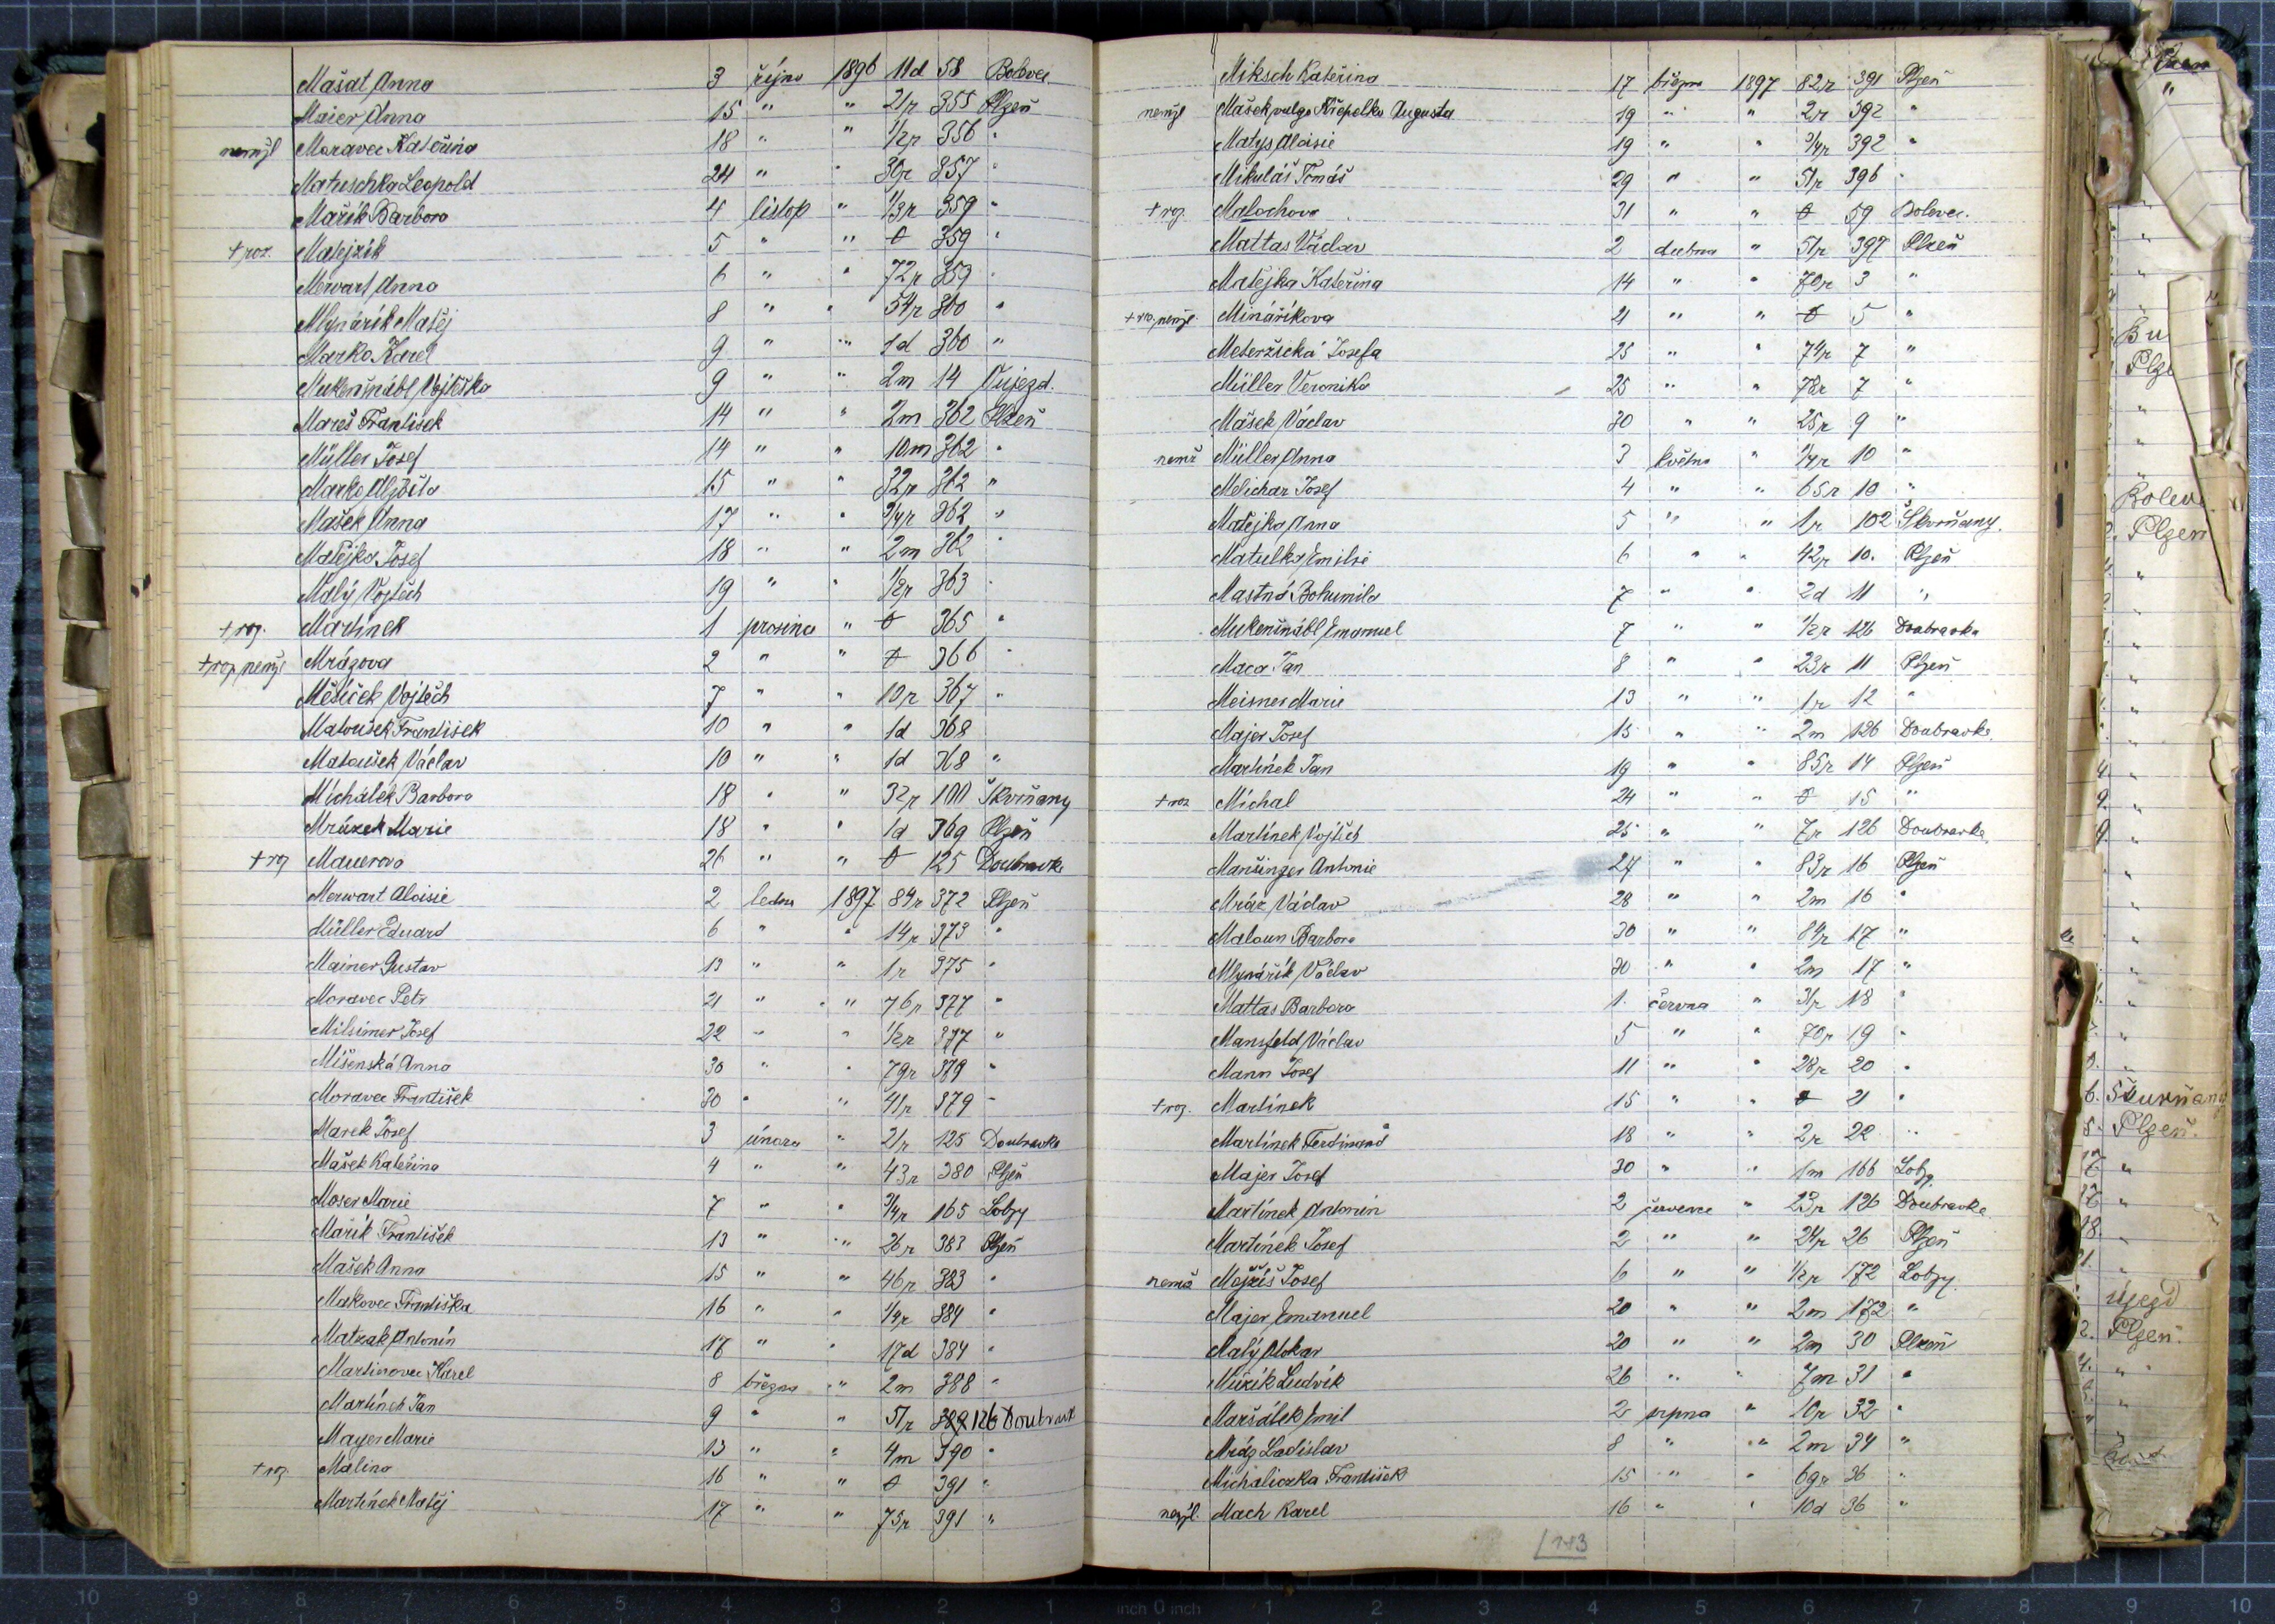 Mašat Anna 3 října 1896 11d 58 Bolevec
Maier Anna 15 " " 21r 355 Plzeň
nemžl Moravec Kateřina 18 " " 1/2r 356 "
Matuschka Leopold 24 " " 30r 357 "
Mařík Barbora 4 listop " 1/3r 359 "
+ roz. Matejzík 5 " " 0 359 "
Merwart Anna 6 " " 72r 359 "
Mlynárik Matěj 8 " " 54r 360 "
Marko Karel 9 " " 1d 360 "
Mukenšnábl Vojtěška 9 " " 2m 14 Vújezd.
Mareš František 14 " " 2m 362 Plzeň
Müller Josef 14 " " 10m 362 "
Marko Alžběta 15 " " 32r 362 "
Mašek Anna 17 " " 3/4r 362 "
Matějka Josef 18 " " 2m 362 "
Malý Vojtěch 19 " " 1/2r 363 "
+ roz. Martínek 1 prosince " 0 365 "
+ roz, nemžl Mrázova 2 " " 0 366 "
Měsíček Vojtěch 7 " " 10r 367 "
Matoušek František 10 " " 1d 368
Matoušek Václav 10 " " 1d 368 "
Michálek Barbora 18 " " 32r 100 Škvrňany
Mrázek Marie 18 " " 1d 369 Plzeň
+ roz Mauerova 26 " " 0 125 Doubravka
Merwart Aloisie 2 ledna 1897 84r 372 Plzeň
Müller Eduard 6 " " 14r 373 "
Mainer Gustav 13 " " 1r 375 "
Moravec Petr 21 " " 76r 377 "
Milsimer Josef 22 " " 1/2r 377 "
Míšenská Anna 30 " " 79r 379 "
Moravec František 30 " " 41r 379 "
Marek Josef 3 února " 21r 125 Doubravka
Mašek Kateřina 4 " " 43r 380 Plzeň
Moser Marie 7 " " 3/4r 165 Lobzy
Mařík František 13 " " 26r 383 Plzeň
Mašek Anna 15 " " 46r 383 "
Makovec Františka 16 " " 1/4r 384 "
Matzak Antonín 17 " " 17d 384 "
Martinovec Karel 8 března " 2m 388 "
Martínek Jan 9 " " 51r 389 126 Doubravk
Mayer Marie 13 " " 4m 390 "
+ roz. Malina 16 " " 0 391 "
Martínek Matěj 17 " " 75r 391 "
Miksch Kateřina 17 března 1897 82r 391 Plzeň
nemžl Mašek vulgo Křepelka Augusta 19 " " 2r 392 "
Matys Aloisie 19 " " 3/4r 392 "
Mikuláš Tomáš 29 " " 51r 396 "
+ roz. Malochova 31 " " 0 59 Bolevec.
Mattas Václav 2 dubna " 51r 397 Plzeň
Matějka Kateřina 14 " " 70r 3 "
+ roz, nemžl. Minaříkova 21 " " 0 5 "
Meteržická Josefa 25 " " 74r 7 "
Müller Veronika 25 " " 78r 7 "
Mašek Václav 30 " " 25r 9 "
nemž Müller Anna 3 května " 1/4r 10 "
Melichar Josef 4 " " 65r 10 "
Matějka Anna 5 " " 1r 102 Škvrňany.
Matulka Emilie 6 " " 42r 10. Plzeň
Mastná Bohumila 7 " " 2d 11 "
Mukenšnábl Emanuel 7 " " 1/2r 126 Doubravka
Maca Jan 8 " " 23r 11 Plzeň
Meisner Marie 13 " " 1r 12 "
Majer Josef 15 " " 2m 126 Doubravka.
Martínek Jan 19 " " 85r 14 Plzeň
+ roz Míchal 24 " " 0 15 "
Martínek Vojtěch 25 " " 7r 126 Doubravka
Manšinger Antonie 27 " " 83r 16 Plzeň
Mráz Václav 28 " " 2m 16 "
Maloun Barbora 30 " " 84r 17 "
Mlynářík Václav 30 " " 2m 17 "
Mattas Barbora 1. června " 31r 18 "
Mansfeld Václav 5 " " 70r 19 "
Mann Josef 11 " " 28r 20 "
+ roz. Martínek 15 " " 0 21 "
Martínek Ferdinand 18 " " 2r 22 "
Majer Josef 30 " " 1m 166 Lobzy.
Martínek Antonín 2 července " 23r 126 Doubravka
Martínek Josef 2 " " 24r 26 Plzeň
nemž Mojžíš Josef 6 " " 1/2r 172 Lobzy.
Majer Emanuel 20 " " 2m 172 "
Malý Otokar 20 " " 2m 30 Plzeň
Mužík Ludvík 26 " " 7m 31 "
Maršálek Emil 2 srpna " 10r 32 "
Mráz Ladislav 8 " " 2m 34 "
Michaliczka František 15 " " 69r 36 "
nemžl. Mach Karel 16 " " 10d 36 "
Bu
Plze
Boleve
Plzen
6. Škvrňany
8. Plzeň.
Újezd
2. Plzeň.
10 9 8 7 6 5 4 3 2 1 inch 0 inch 1 2 3 4 5 6 7 8 9 10